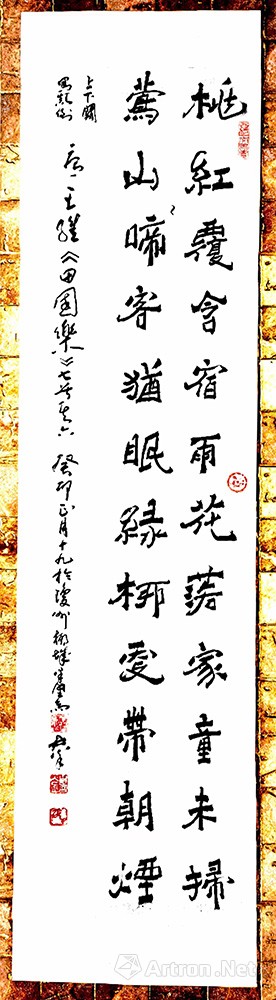 桃紅覆含宿雨花落家童未掃
鶯山啼客猶眠緑柳更帶朝煙
唐 王維《田園樂》七首其六 癸卯正月十九於瓊州椰城
上下闋
Artron.Net